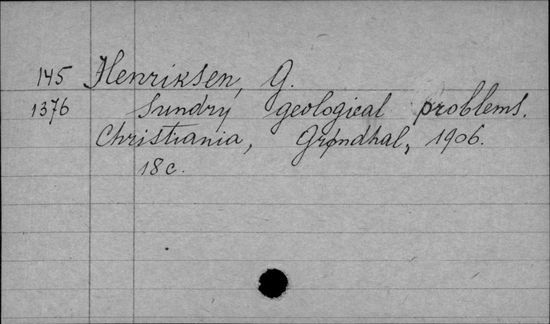 145 Henriksen, G.
1376 Sundry geological problems.
Christiania, Grøndhal, 1906.
18 c.